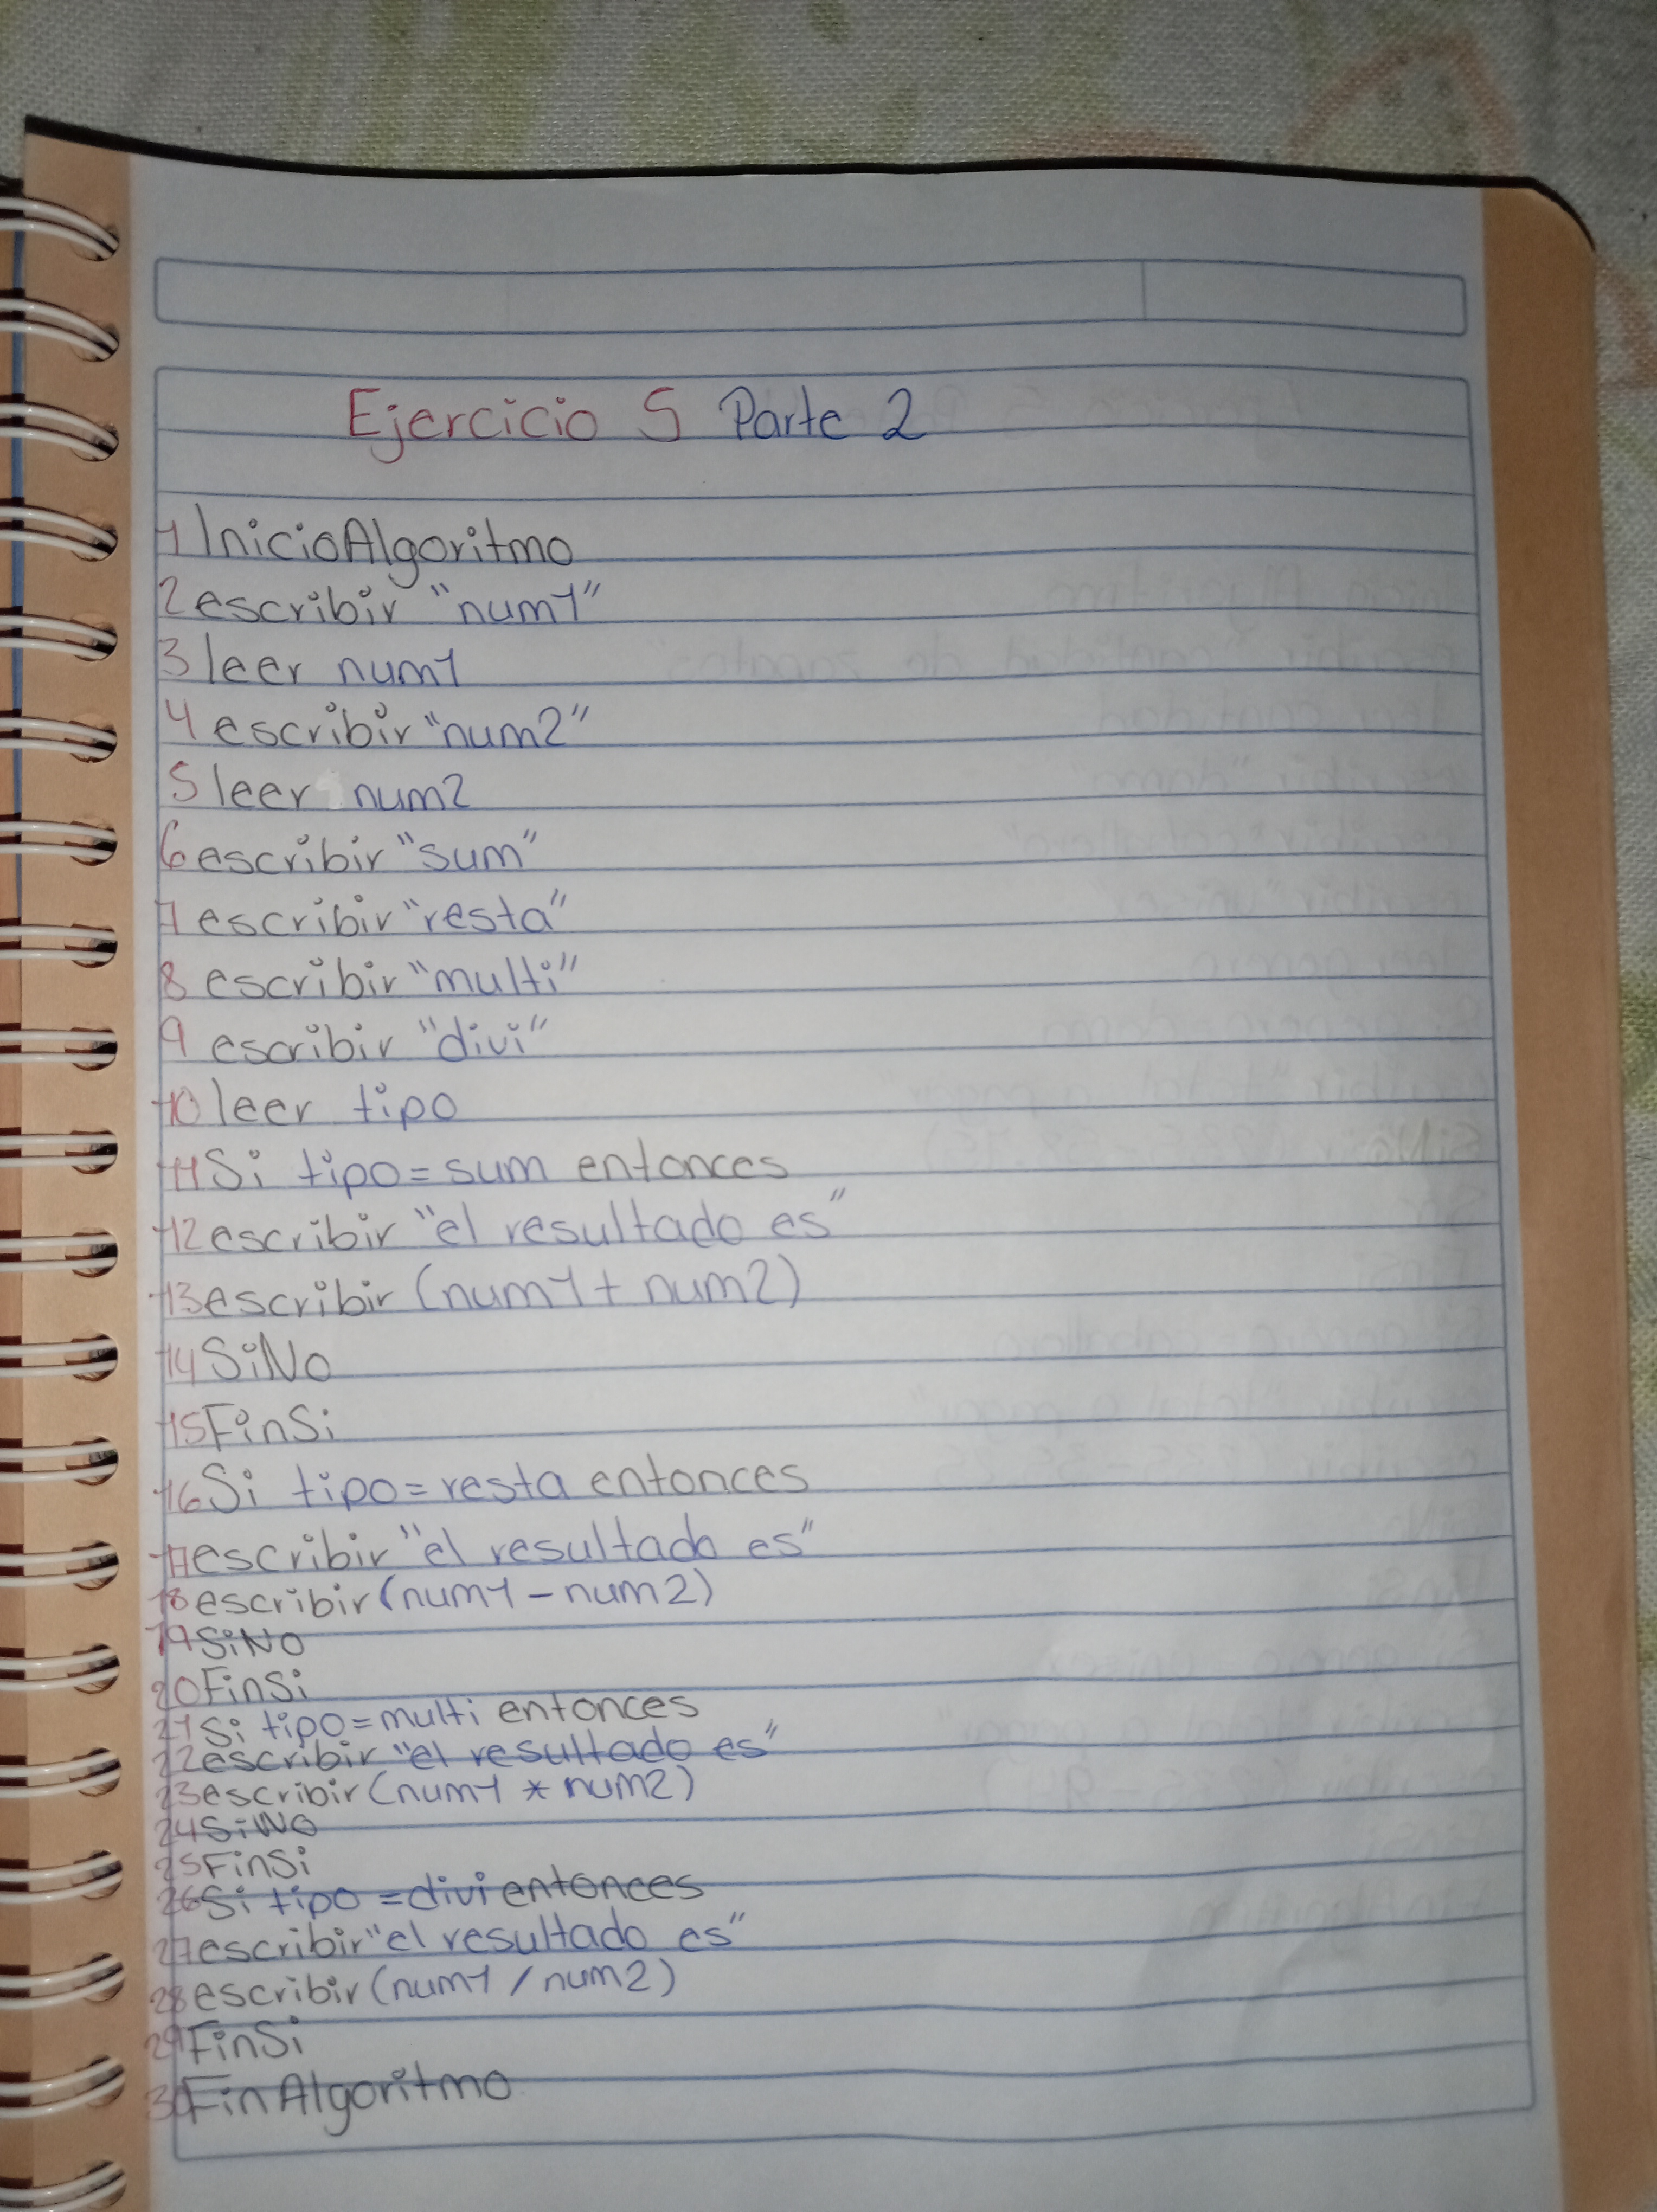 Ejercicio 5 Parte 2
1 InicioAlgoritmo
2 escribir "num1"
3 leer num1
4 escribir "num2"
5 leer num2
6 escribir "sum"
7 escribir "resta"
8 escribir "multi"
9 escribir "divi"
10 leer tipo
11 Si tipo = sum entonces
12 escribir "el resultado es"
13 escribir (num1 + num2)
14 SiNo
15 FinSi
16 Si tipo = resta entonces
17 escribir "el resultado es"
18 escribir (num1 - num2)
19 SiNo
20 FinSi
21 Si tipo = multi entonces
22 escribir "el resultado es"
23 escribir (num1 * num2)
24 SiNo
25 FinSi
26 Si tipo = divi entonces
27 escribir "el resultado es"
28 escribir (num1 / num2)
29 FinSi
30 FinAlgoritmo